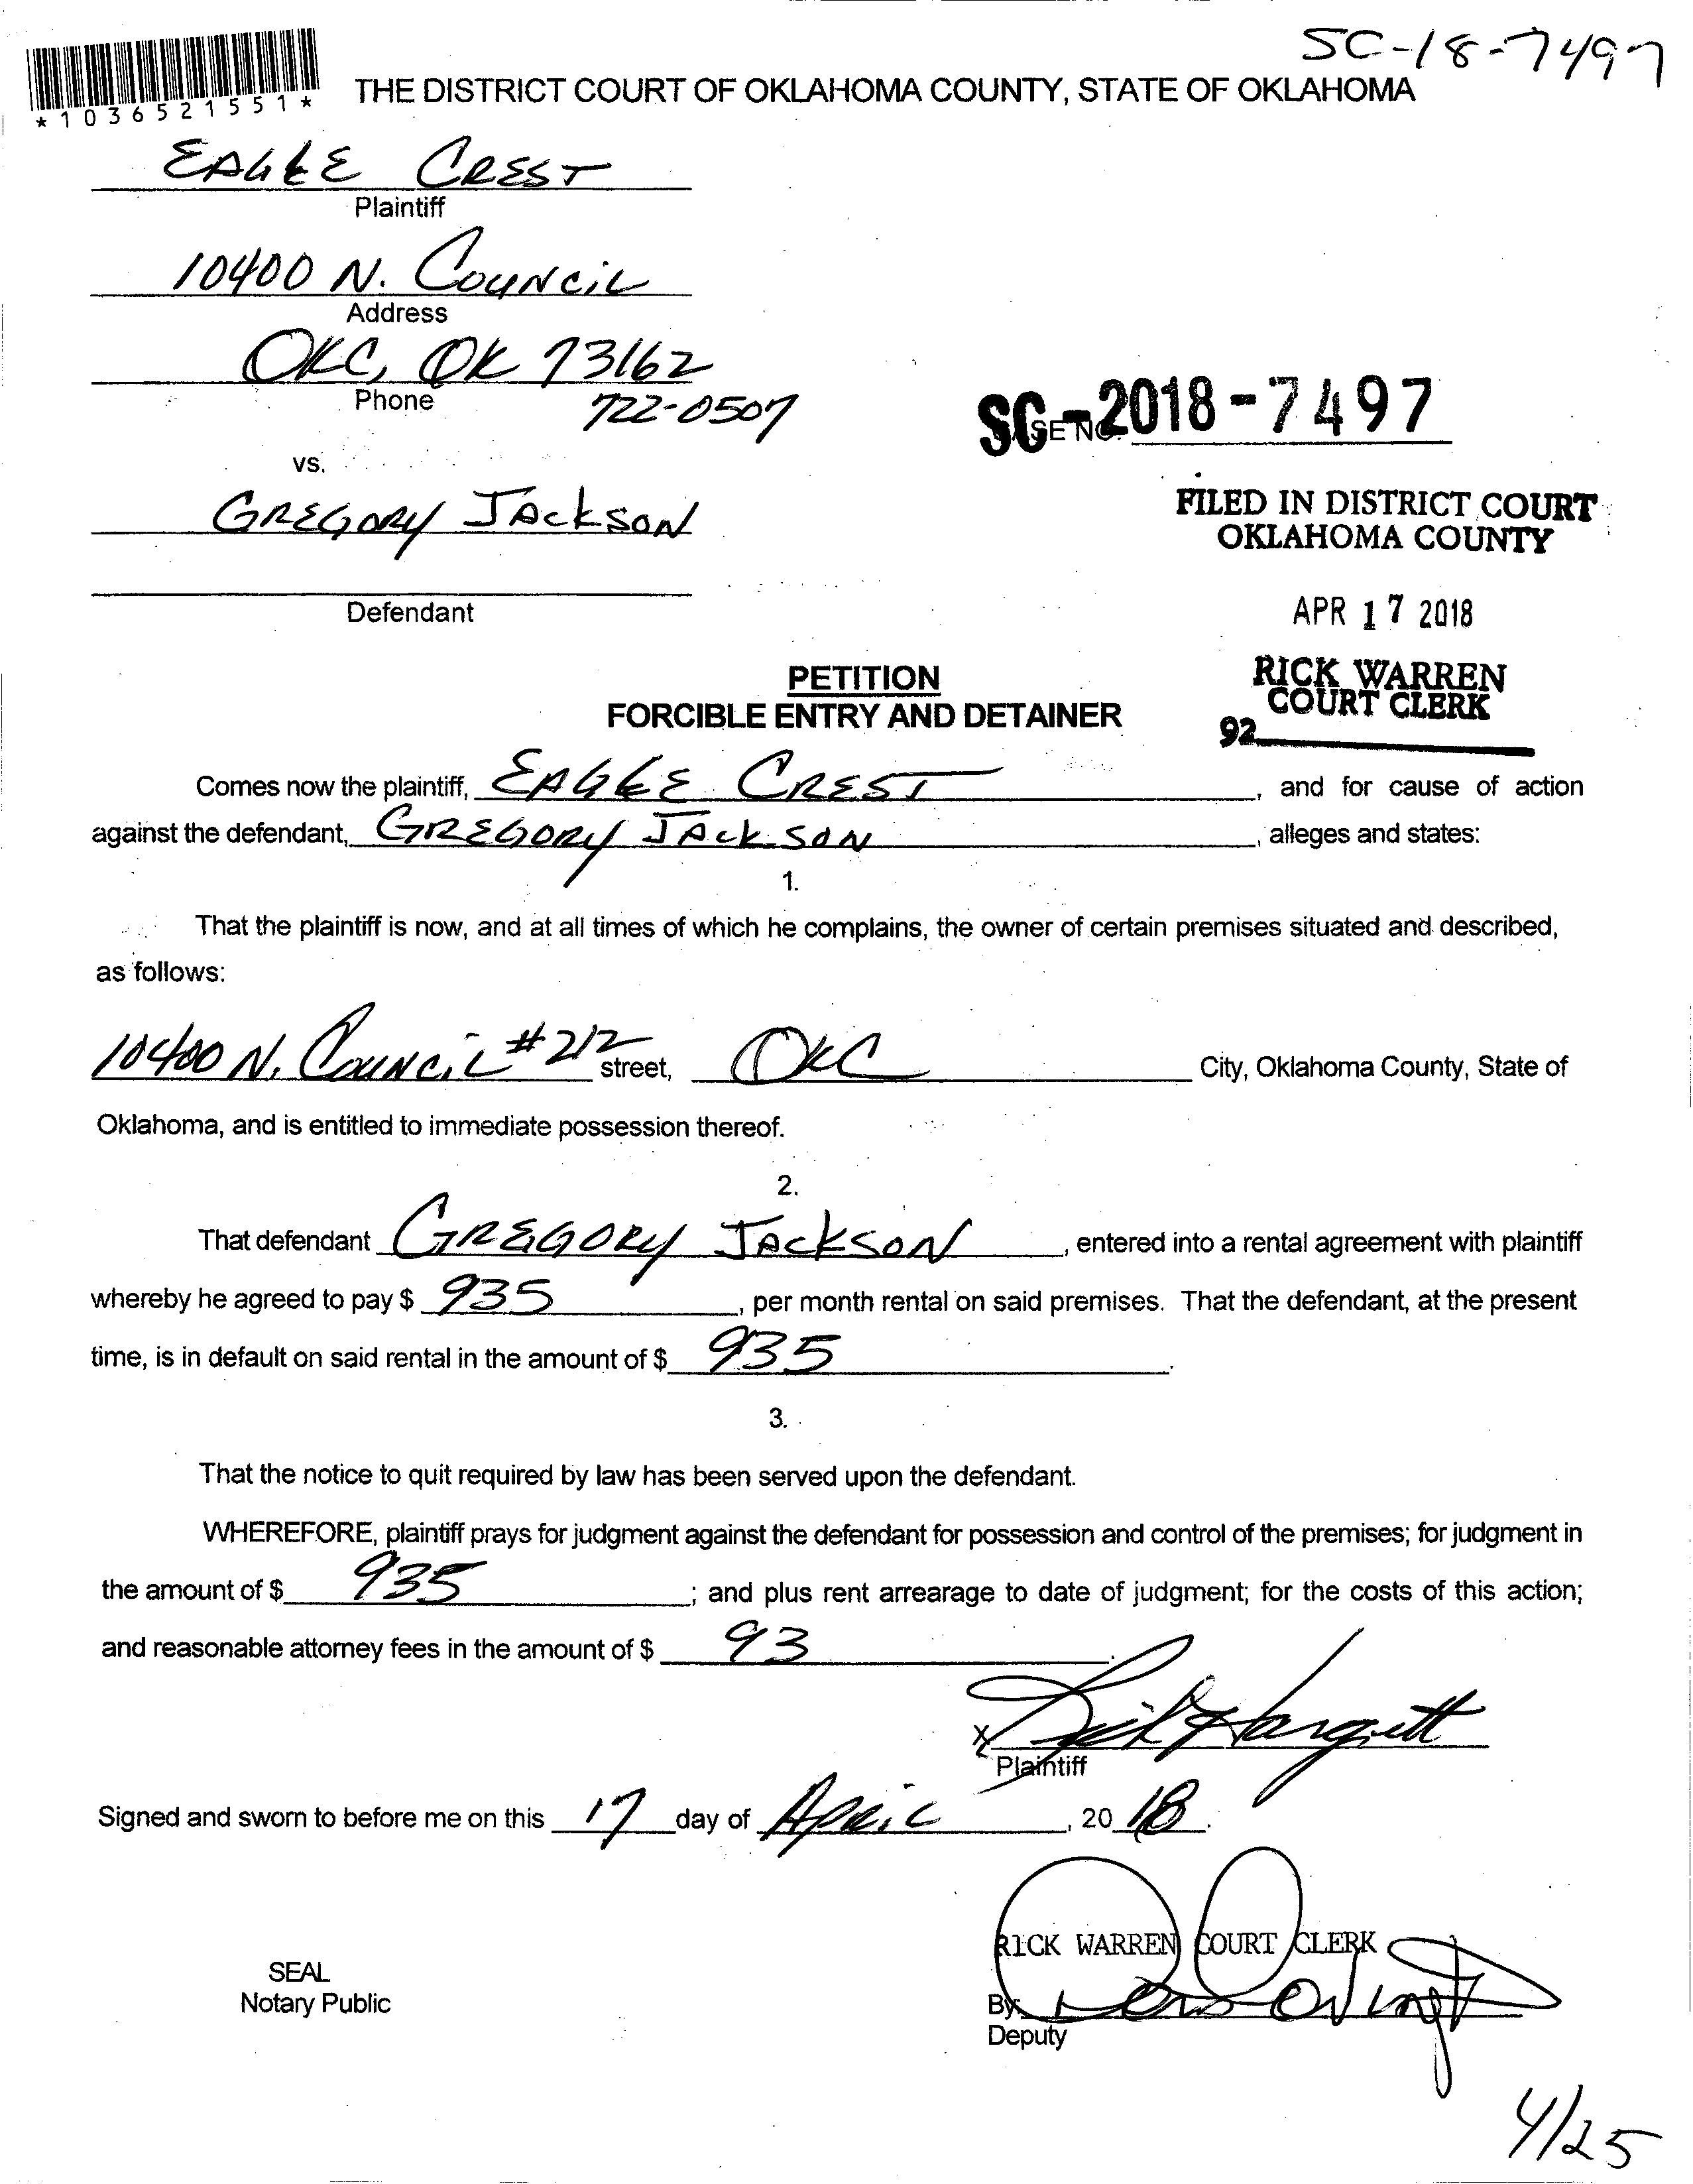 SC-18-7497
*1036521551*
THE DISTRICT COURT OF OKLAHOMA COUNTY, STATE OF OKLAHOMA
EAGLE CREST
Plaintiff
10400 N. COUNCIL
Address
OKC, OK 73162
Phone
722-0507
SC-2018-7497
SE NO.
vs.
GREGORY JACKSON
FILED IN DISTRICT COURT
OKLAHOMA COUNTY
Defendant
APR 17 2018
PETITION
FORCIBLE ENTRY AND DETAINER
RICK WARREN
COURT CLERK
92
Comes now the plaintiff, EAGLE CREST, and for cause of action
against the defendant, GREGORY JACKSON, alleges and states:
1.
That the plaintiff is now, and at all times of which he complains, the owner of certain premises situated and described,
as follows:
10400 N. COUNCIL #212 street, OKC City, Oklahoma County, State of
Oklahoma, and is entitled to immediate possession thereof.
2.
That defendant GREGORY JACKSON, entered into a rental agreement with plaintiff
whereby he agreed to pay $ 935, per month rental on said premises. That the defendant, at the present
time, is in default on said rental in the amount of $ 935.
3.
That the notice to quit required by law has been served upon the defendant.
WHEREFORE, plaintiff prays for judgment against the defendant for possession and control of the premises; for judgment in
the amount of $ 935; and plus rent arrearage to date of judgment; for the costs of this action;
and reasonable attorney fees in the amount of $ 93.
X Hargett
Plaintiff
Signed and sworn to before me on this 17 day of APRIL, 2018.
RICK WARREN COURT CLERK
SEAL
Notary Public
By:
Deputy
4/25